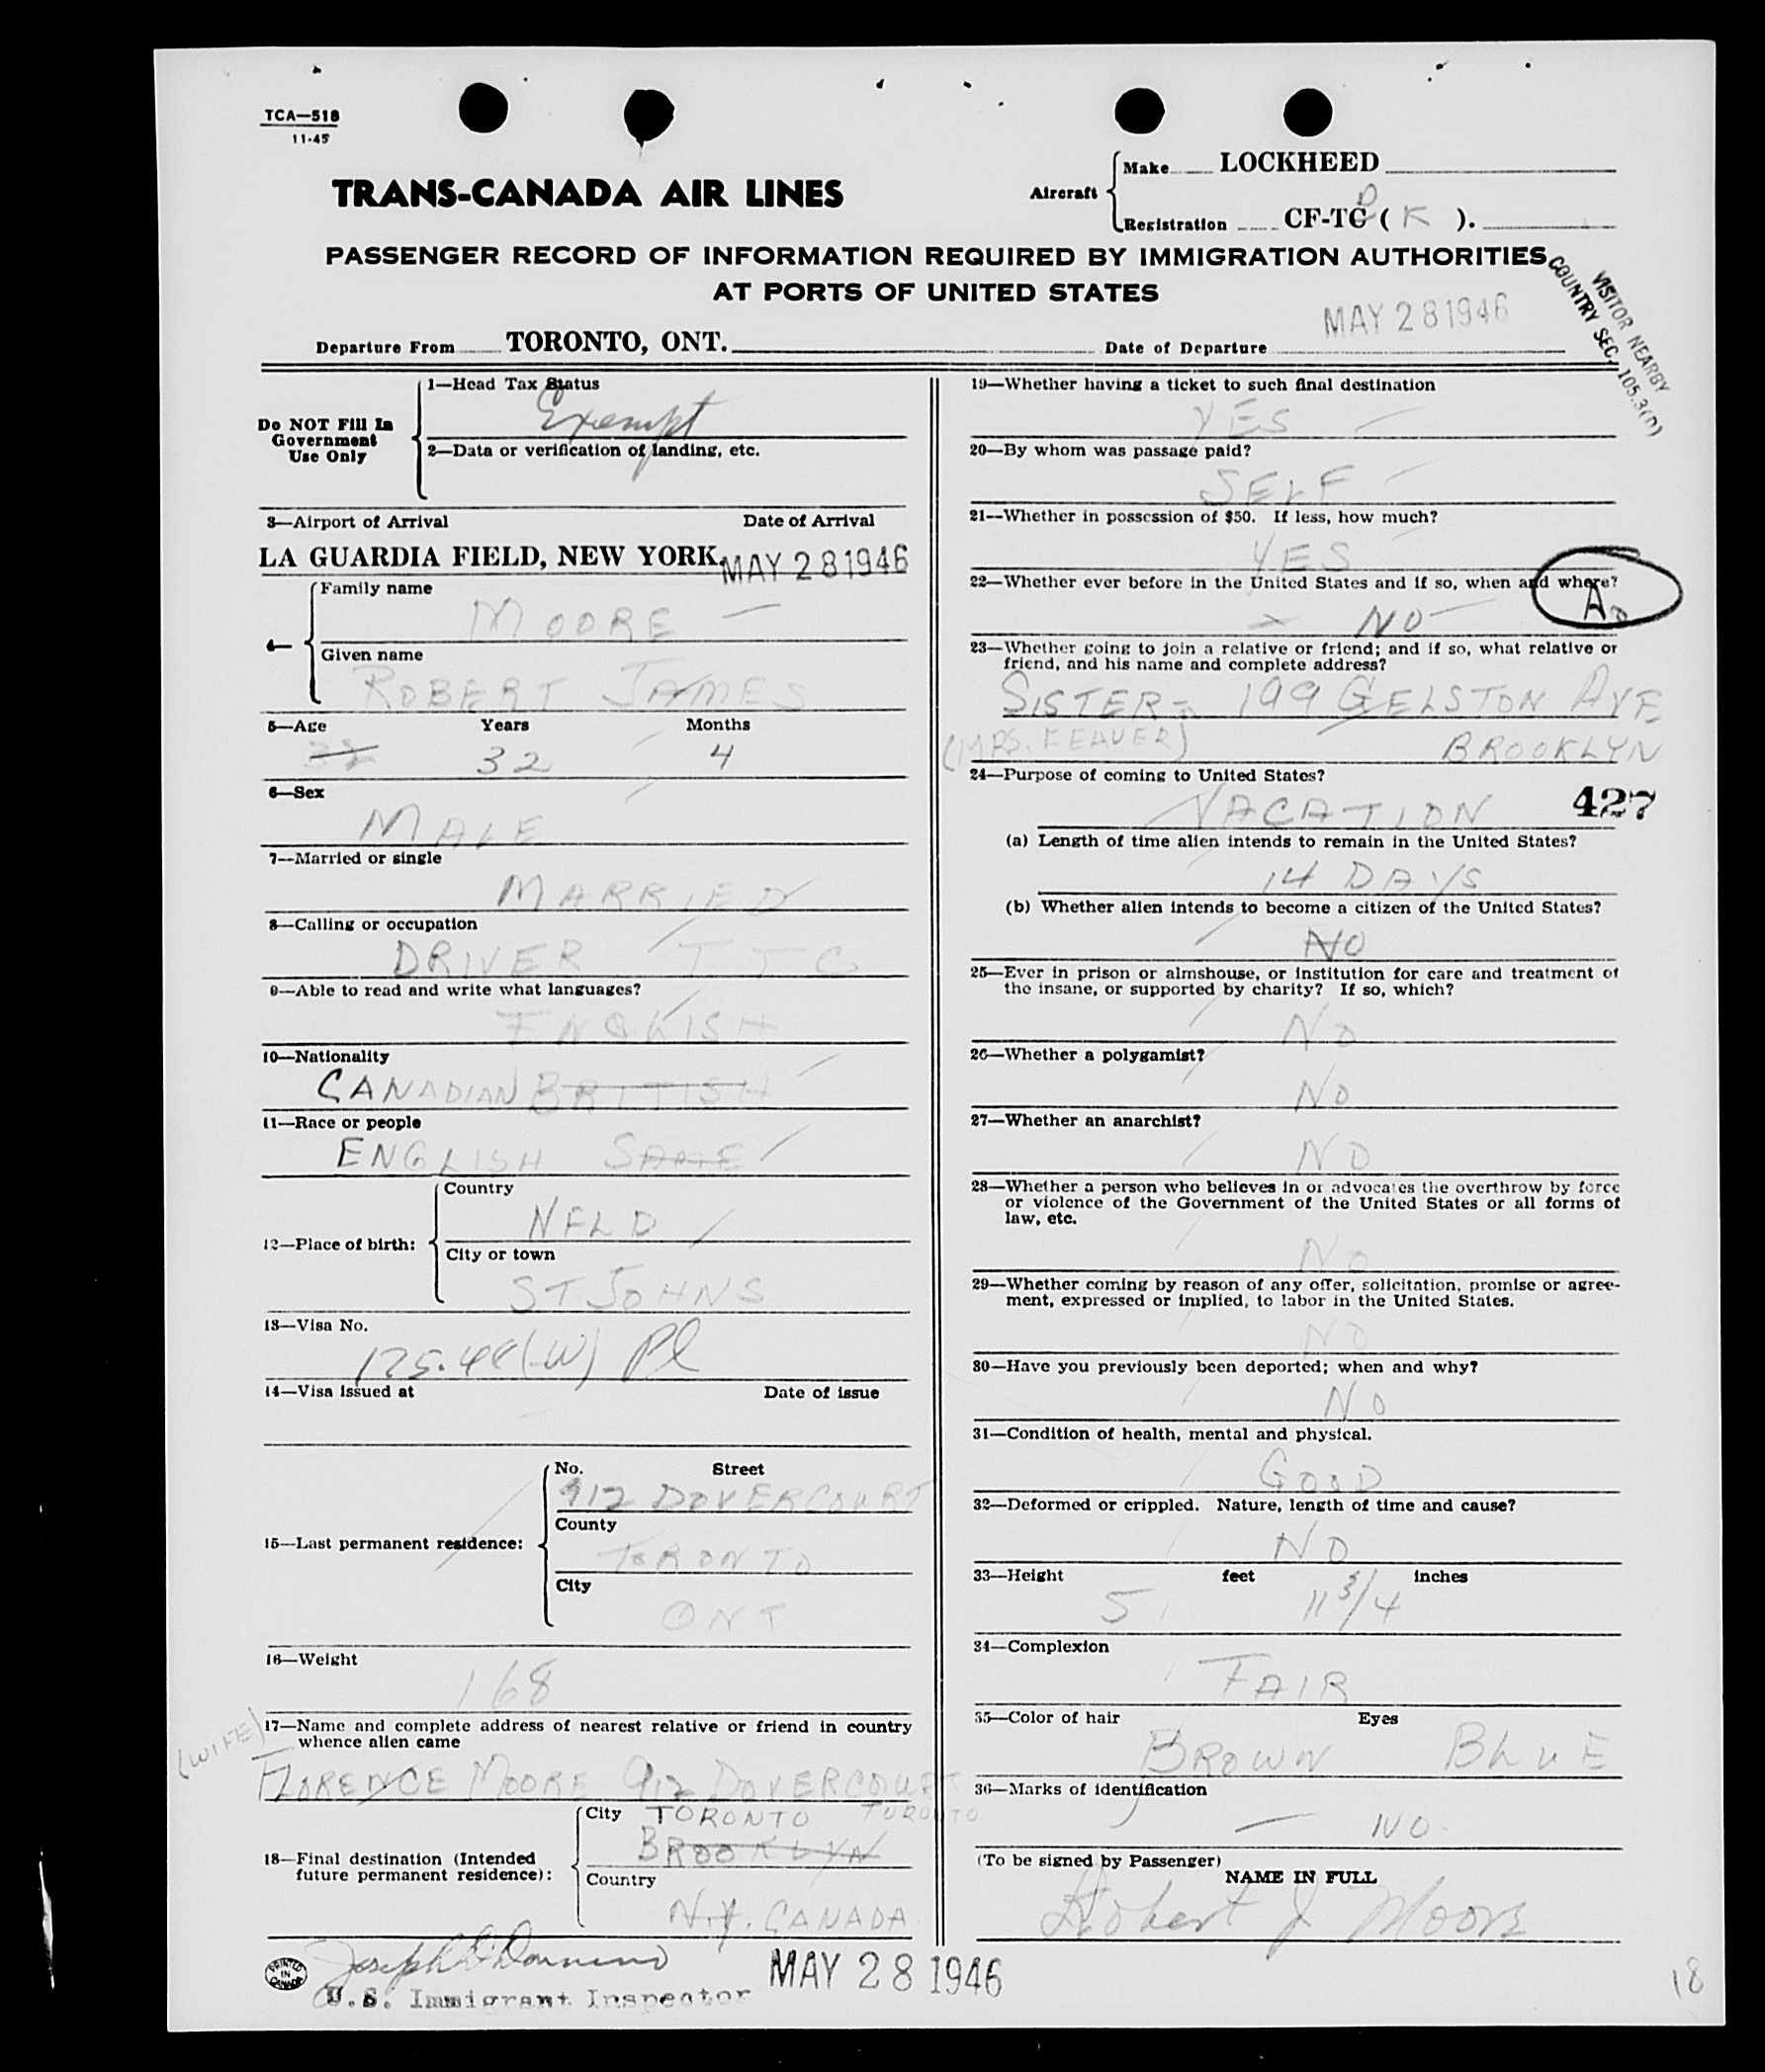 TCA—518
11-45
TRANS-CANADA AIR LINES
Aircraft
Make LOCKHEED
Registration CF-TC D ( K ).
PASSENGER RECORD OF INFORMATION REQUIRED BY IMMIGRATION AUTHORITIES
AT PORTS OF UNITED STATES
VISITOR NEARBY
COUNTRY SEC. 105.3(D)
MAY 28 1946
Departure From TORONTO, ONT. Date of Departure
Do NOT Fill In
Government
Use Only
1—Head Tax Status
Exempt
2—Data or verification of landing, etc.
3—Airport of Arrival Date of Arrival
LA GUARDIA FIELD, NEW YORK. MAY 28 1946
4—
Family name
MOORE
Given name
ROBERT JAMES
5—Age Years Months
32 4
6—Sex
MALE
7—Married or single
MARRIED
8—Calling or occupation
DRIVER TTC
9—Able to read and write what languages?
ENGLISH
10—Nationality
CANADIAN BRITISH
11—Race or people
ENGLISH SAME
12—Place of birth:
Country
NFLD
City or town
ST JOHNS
13—Visa No.
175.44(W) Pl
14—Visa issued at Date of issue
15—Last permanent residence:
No. Street
912 DOVERCOURT
County
TORONTO
City
ONT
16—Weight
168
(WIFE)
17—Name and complete address of nearest relative or friend in country
whence alien came
FLORENCE MOORE 912 DOVERCOURT
TORONTO
18—Final destination (Intended
future permanent residence):
City TORONTO
BROOKLYN
Country
N.Y. CANADA
PRINTED
IN
CANADA
U.S. Immigrant Inspector
MAY 28 1946
19—Whether having a ticket to such final destination
YES
20—By whom was passage paid?
SELF
21—Whether in possession of $50. If less, how much?
YES
22—Whether ever before in the United States and if so, when and where?
NO
23—Whether going to join a relative or friend; and if so, what relative or
friend, and his name and complete address?
SISTER- 199 GELSTON AVE
(MRS. FEAVER) BROOKLYN
24—Purpose of coming to United States?
VACATION 427
(a) Length of time alien intends to remain in the United States?
14 DAYS
(b) Whether alien intends to become a citizen of the United States?
NO
25—Ever in prison or almshouse, or institution for care and treatment of
the insane, or supported by charity? If so, which?
NO
26—Whether a polygamist?
NO
27—Whether an anarchist?
NO
28—Whether a person who believes in or advocates the overthrow by force
or violence of the Government of the United States or all forms of
law, etc.
NO
29—Whether coming by reason of any offer, solicitation, promise or agree-
ment, expressed or implied, to labor in the United States.
NO
30—Have you previously been deported; when and why?
NO
31—Condition of health, mental and physical.
GOOD
32—Deformed or crippled. Nature, length of time and cause?
NO
33—Height feet inches
5 11 3/4
34—Complexion
FAIR
35—Color of hair Eyes
BROWN BLUE
36—Marks of identification
— NO
(To be signed by Passenger)
NAME IN FULL
Robert J Moore
18